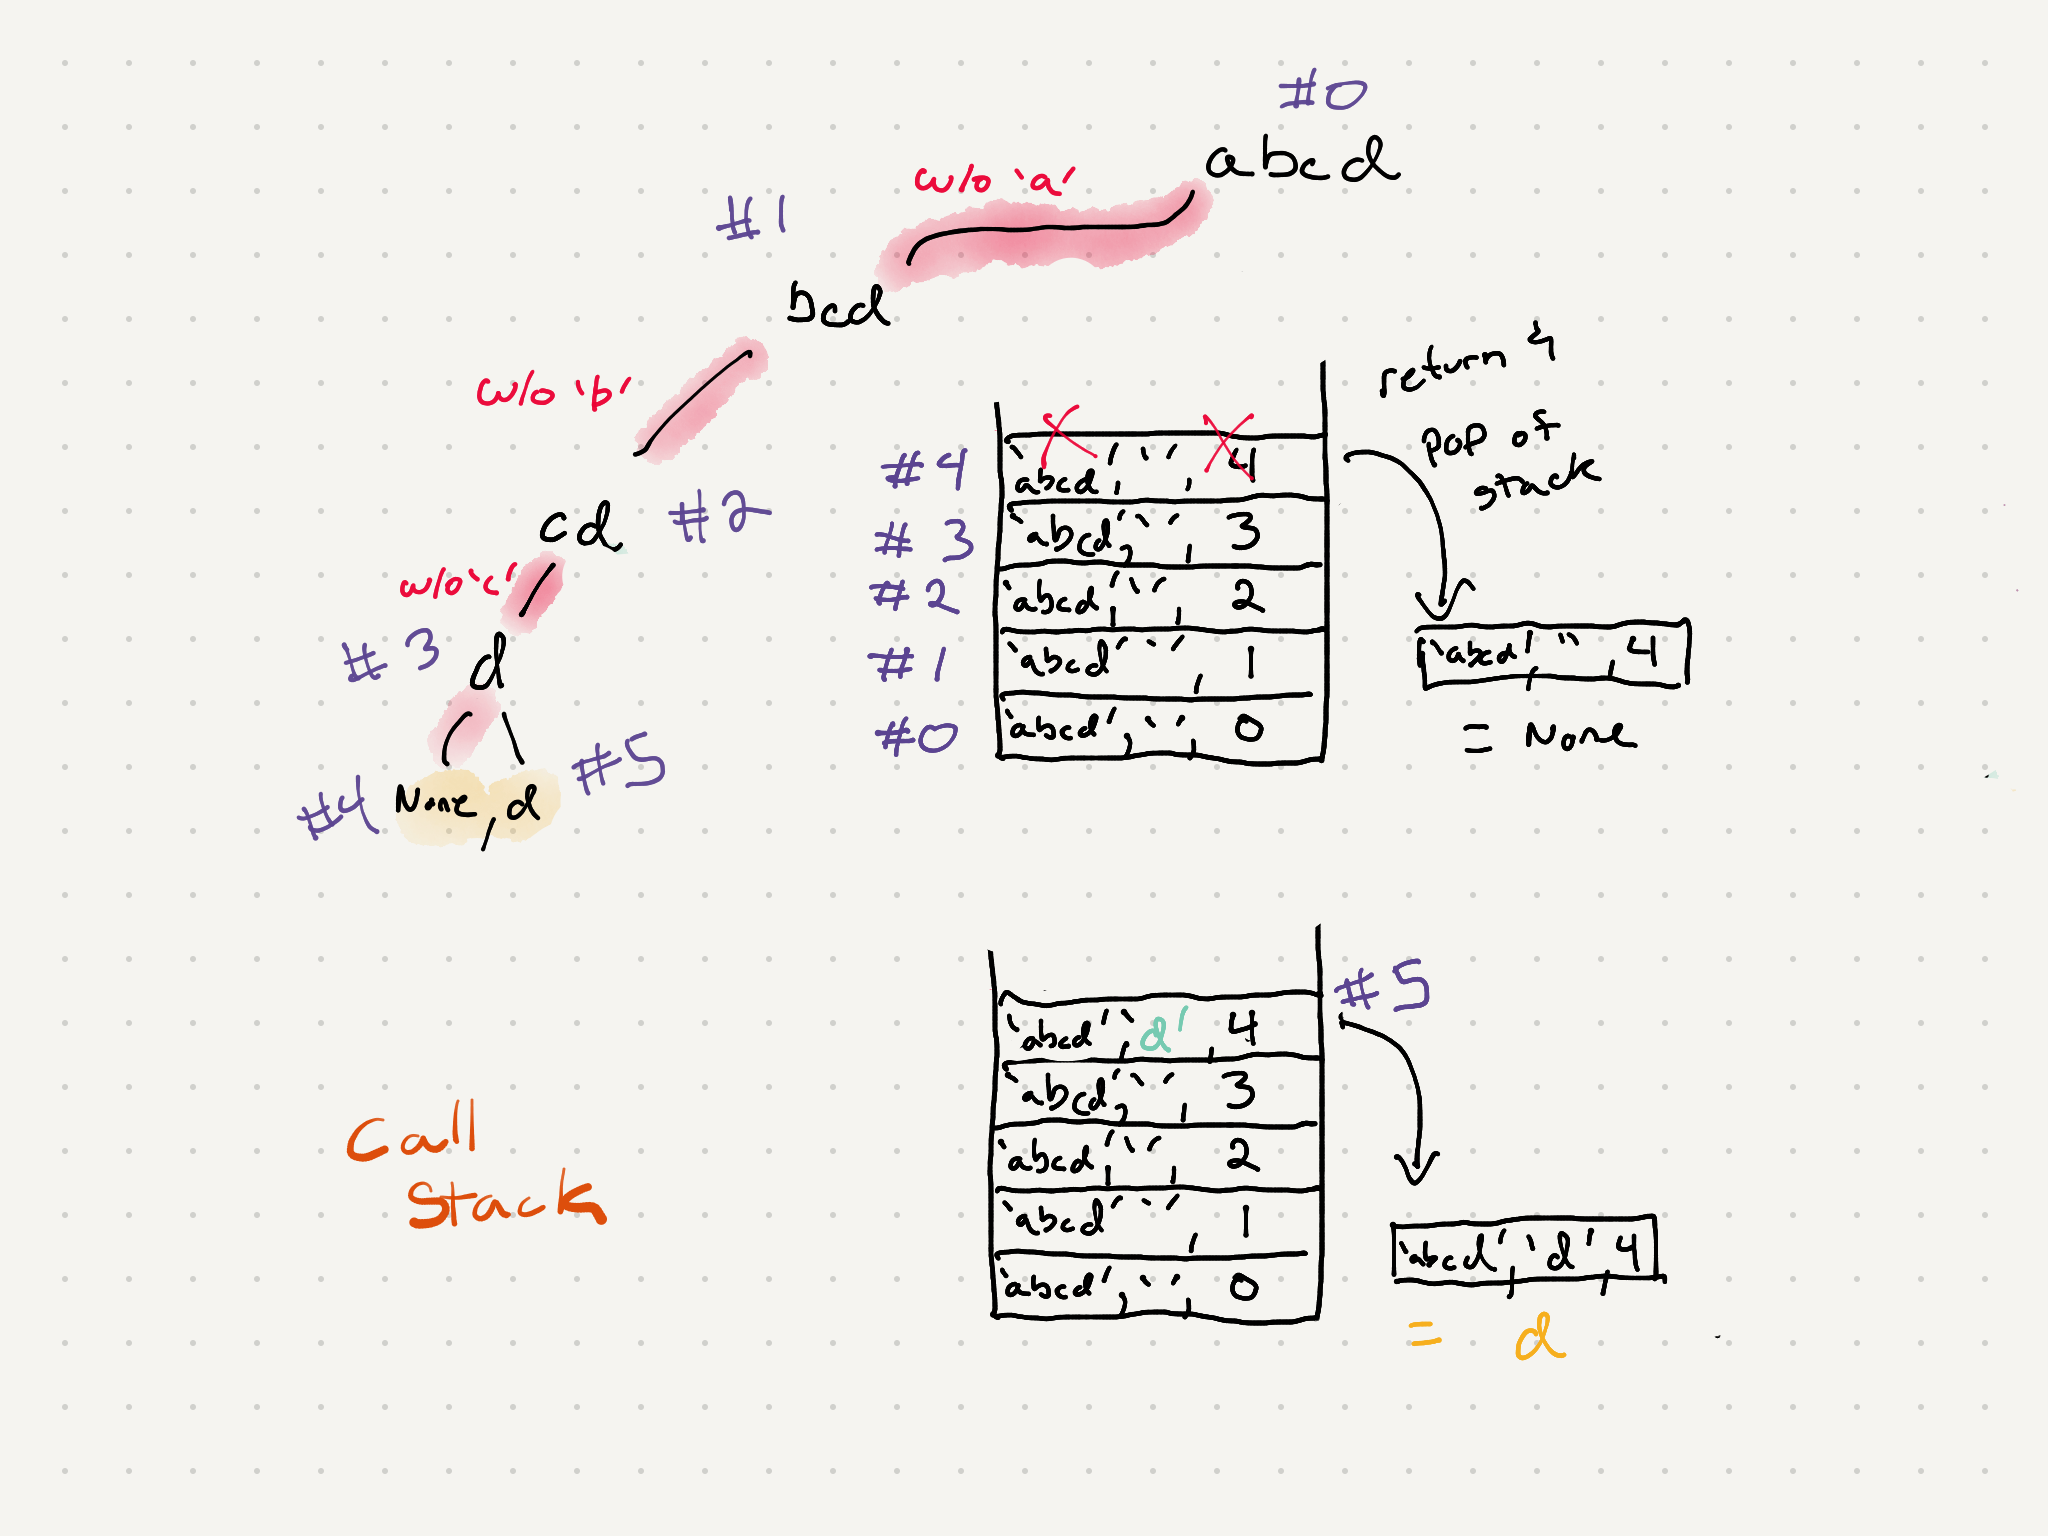 #0
abcd
w/o 'a'
#1
bcd
w/o 'b'
cd #2
w/o 'c'
#3
d
#4 None, d #5
return &
pop of
stack
#4 'abcd', '', 4
#3 'abcd', '', 3
#2 'abcd', '', 2
#1 'abcd' '', 1
#0 'abcd', '', 0
'abcd', '', 4
= None
#5
'abcd', 'd', 4
'abcd', '', 3
'abcd', '', 2
'abcd' '', 1
'abcd', '', 0
'abcd', 'd', 4
= d
Call
Stack